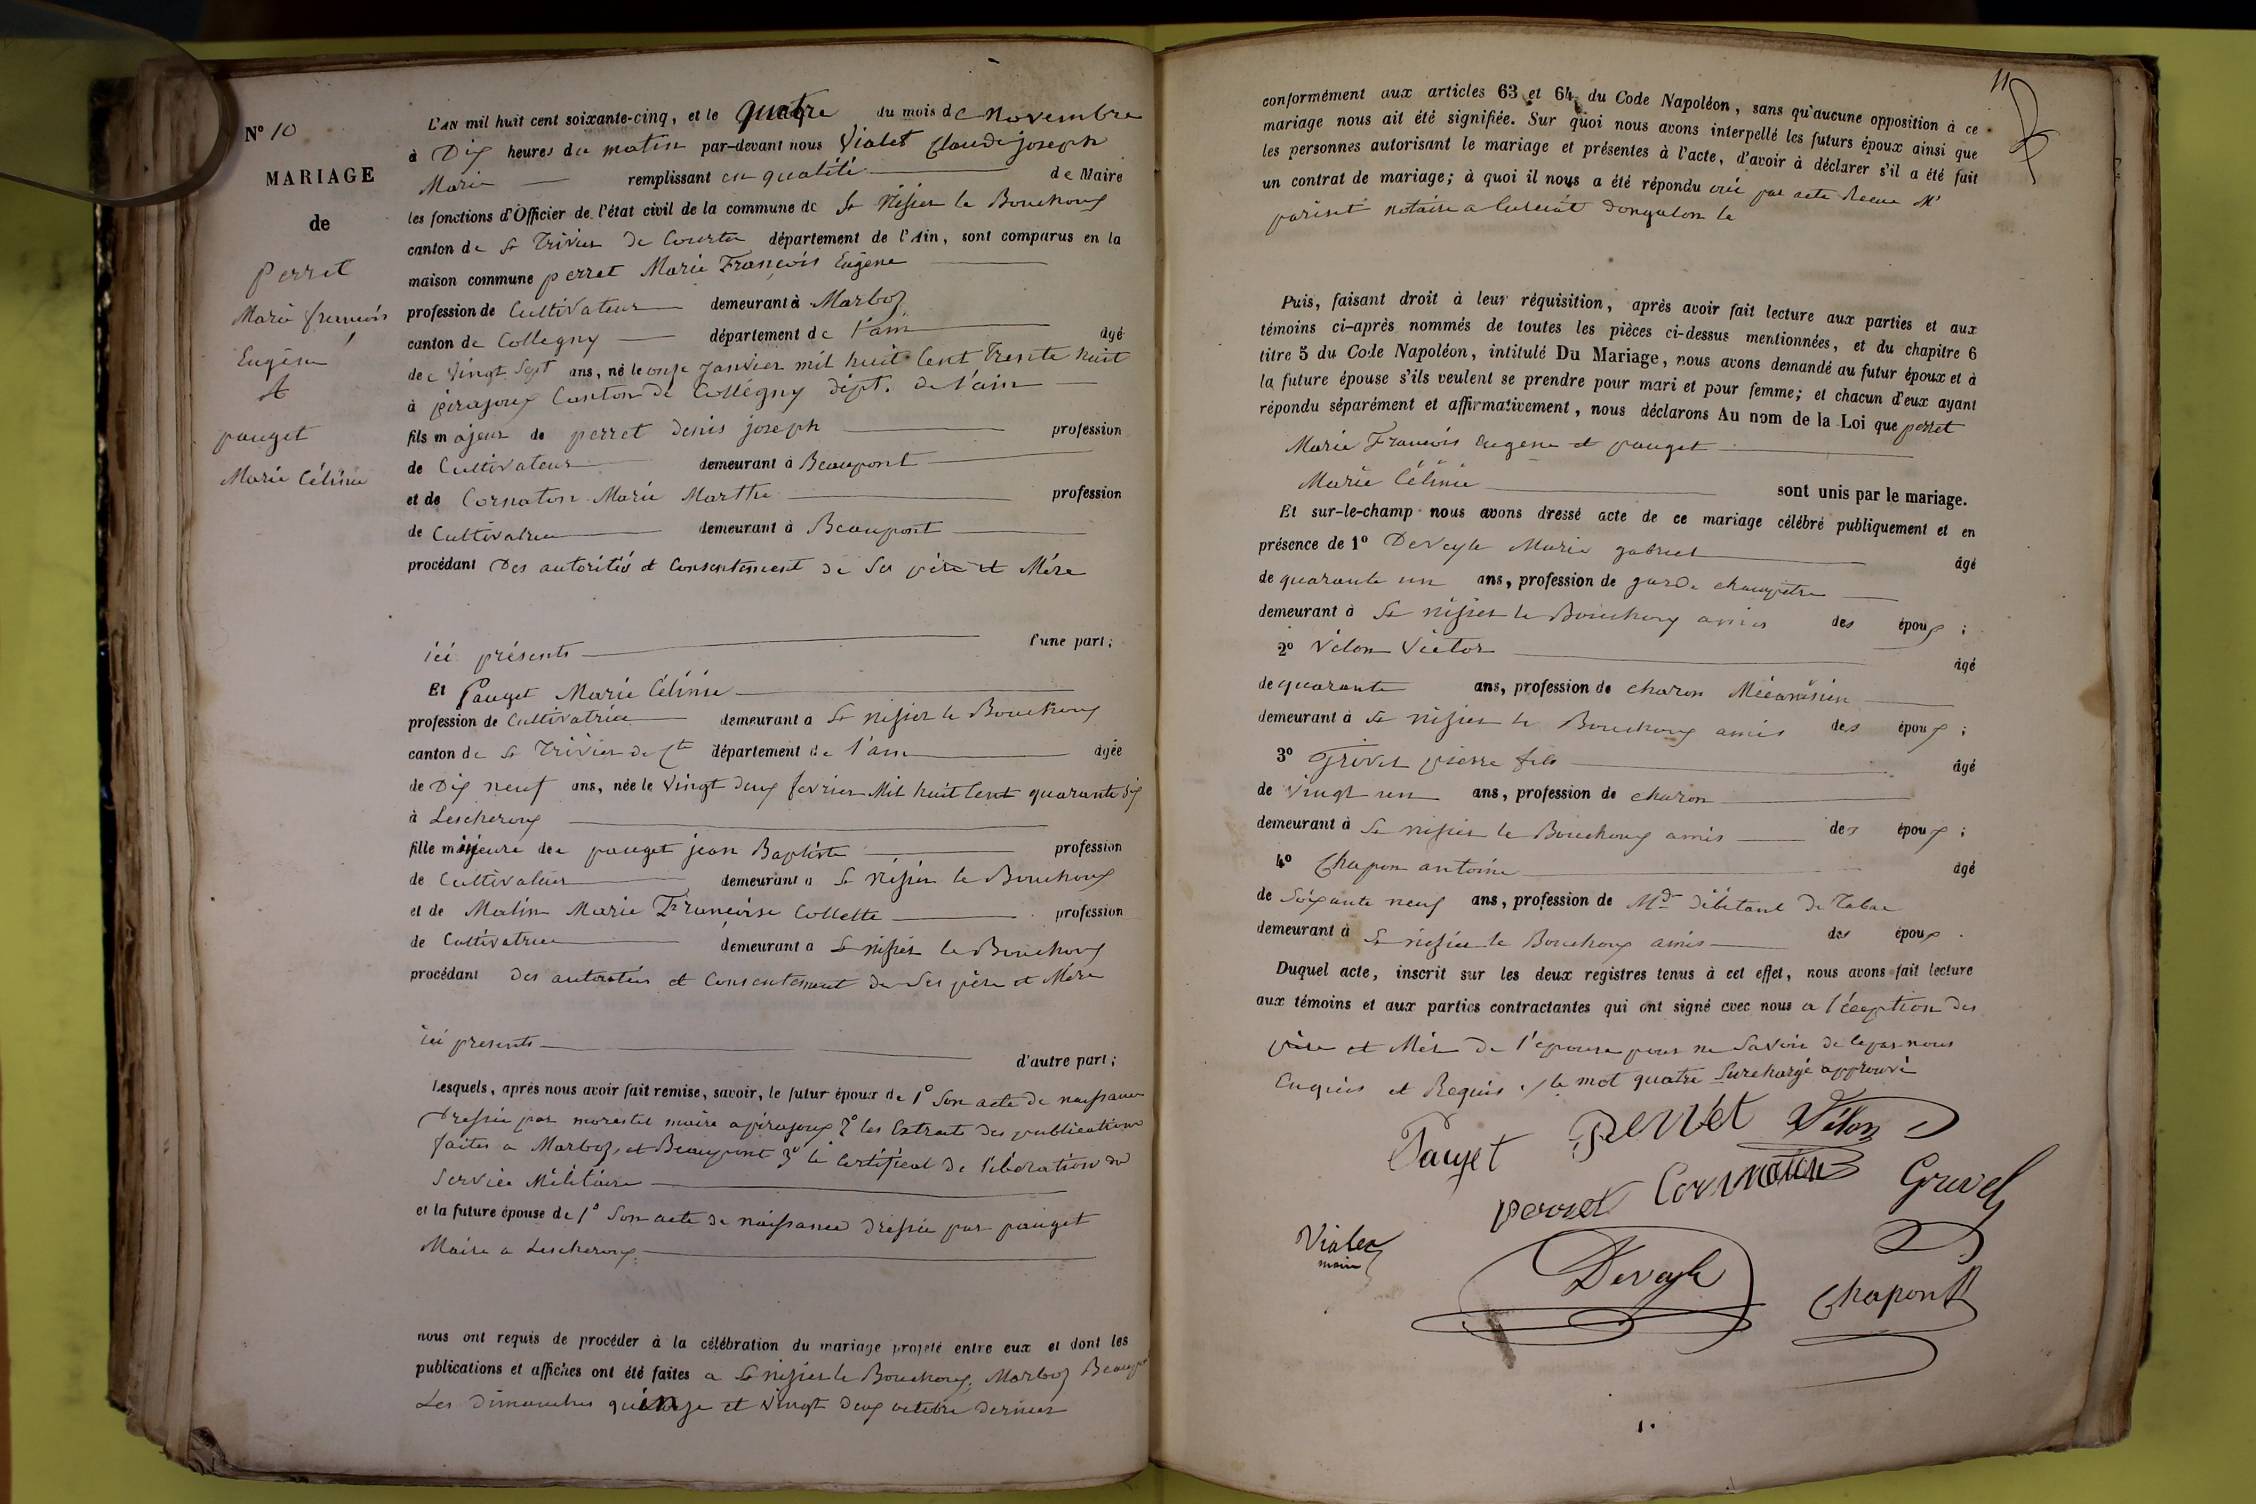 N° 10
MARIAGE
de
Perret
Marie françois
Eugène
et
pauget
Marie Célinie
L'AN mil huit cent soixante-cinq, et le quatre du mois de Novembre
à Dix heures du matin par-devant nous Vialet Claude joseph
Marie remplissant en qualité de Maire
les fonctions d'Officier de l'état civil de la commune de St Nisier le Bouchoux
canton de St Trivier de Courtes département de l'Ain, sont comparus en la
maison commune perret Marie François Eugène
profession de Cultivateur demeurant à Marboz
canton de Collegny département de l'ain âgé
de vingt Sept ans, né le onze janvier mil huit Cent Trente huit
à pirajoux Canton de Collégny dépt. de l'ain
fils majeur de perret denis joseph profession
de Cultivateur demeurant à Beaupont
et de Cornaton Marie Marthe profession
de Cultivatrice demeurant à Beaupont
procédant Des autorités et Consentement de Ses père et Mère
ici présents l'une part ;
Et Pauget Marie Célinie
profession de Cultivatrice demeurant à St Nisier le Bouchoux
canton de St Trivier de Cte département de l'ain âgée
de Dix neuf ans, née le Vingt deux fevrier Mil huit Cent quarante six
à Lescheroux
fille mineure de pauget jean Baptiste profession
de Cultivateur demeurant à St Nisier le Bouchoux
et de Malin Marie Françoise Collette profession
de Cultivatrice demeurant à St nisier le Bouchoux
procédant des autorités et Consentement de Ses père et Mère
ici presents d'autre part ;
Lesquels, après nous avoir fait remise, savoir, le futur époux de 1° Son acte de naissance
Dressée par morestel maire a pirajoux 2° les Extraits des publications
faites a Marboz, et Beaupont 3° le Certificat de libération du
Service Militaire
et la future épouse de 1° Son acte de naissance dressée par pauget
Maire a Lescheroux
nous ont requis de procéder à la célébration du mariage projeté entre eux et dont les
publications et affiches ont été faites a St nisier le Bouchoux, Marboz Beaupont
Les Dimanches quinze et Vingt deux octobre dernier
11
conformément aux articles 63 et 64 du Code Napoléon, sans qu'aucune opposition à ce
mariage nous ait été signifiée. Sur quoi nous avons interpellé les futurs époux ainsi que
les personnes autorisant le mariage et présentes à l'acte, d'avoir à déclarer s'il a été fait
un contrat de mariage ; à quoi il nous a été répondu oui par acte Recue Me
parisot notaire a Curciat dongalon le
Puis, faisant droit à leur réquisition, après avoir fait lecture aux parties et aux
témoins ci-après nommés de toutes les pièces ci-dessus mentionnées, et du chapitre 6
titre 5 du Code Napoléon, intitulé Du Mariage, nous avons demandé au futur époux et à
la future épouse s'ils veulent se prendre pour mari et pour femme ; et chacun d'eux ayant
répondu séparément et affirmativement, nous déclarons Au nom de la Loi que perret
Marie François Eugene et pauget
Marie Célinie sont unis par le mariage.
Et sur-le-champ nous avons dressé acte de ce mariage célébré publiquement et en
présence de 1° Deveyle Marie gabriel âgé
de quarante un ans, profession de garde champêtre
demeurant à St nisier le Bouchoux amis des époux ;
2° Vélon Victor âgé
de quarante ans, profession de charon Mécanisien
demeurant à St nisier le Bouchoux amis des époux ;
3° Grivel pierre fils âgé
de Vingt un ans, profession de charon
demeurant à St nisier le Bouchoux amis des époux ;
4° Chapon antoine âgé
de Soixante neuf ans, profession de Md débitant de Tabac
demeurant à St nisier le Bouchoux amis des époux .
Duquel acte, inscrit sur les deux registres tenus à cet effet, nous avons fait lecture
aux témoins et aux parties contractantes qui ont signé avec nous a l'éception des
père et Mère de l'épouse pour ne Savoir de lepar nous
Enquis et Requis ./. le mot quatre Surchargé approuvé
Pauget Perret Vélon
perret Cornaton Grivel
Vialet
maire
Deveyle
Chapont